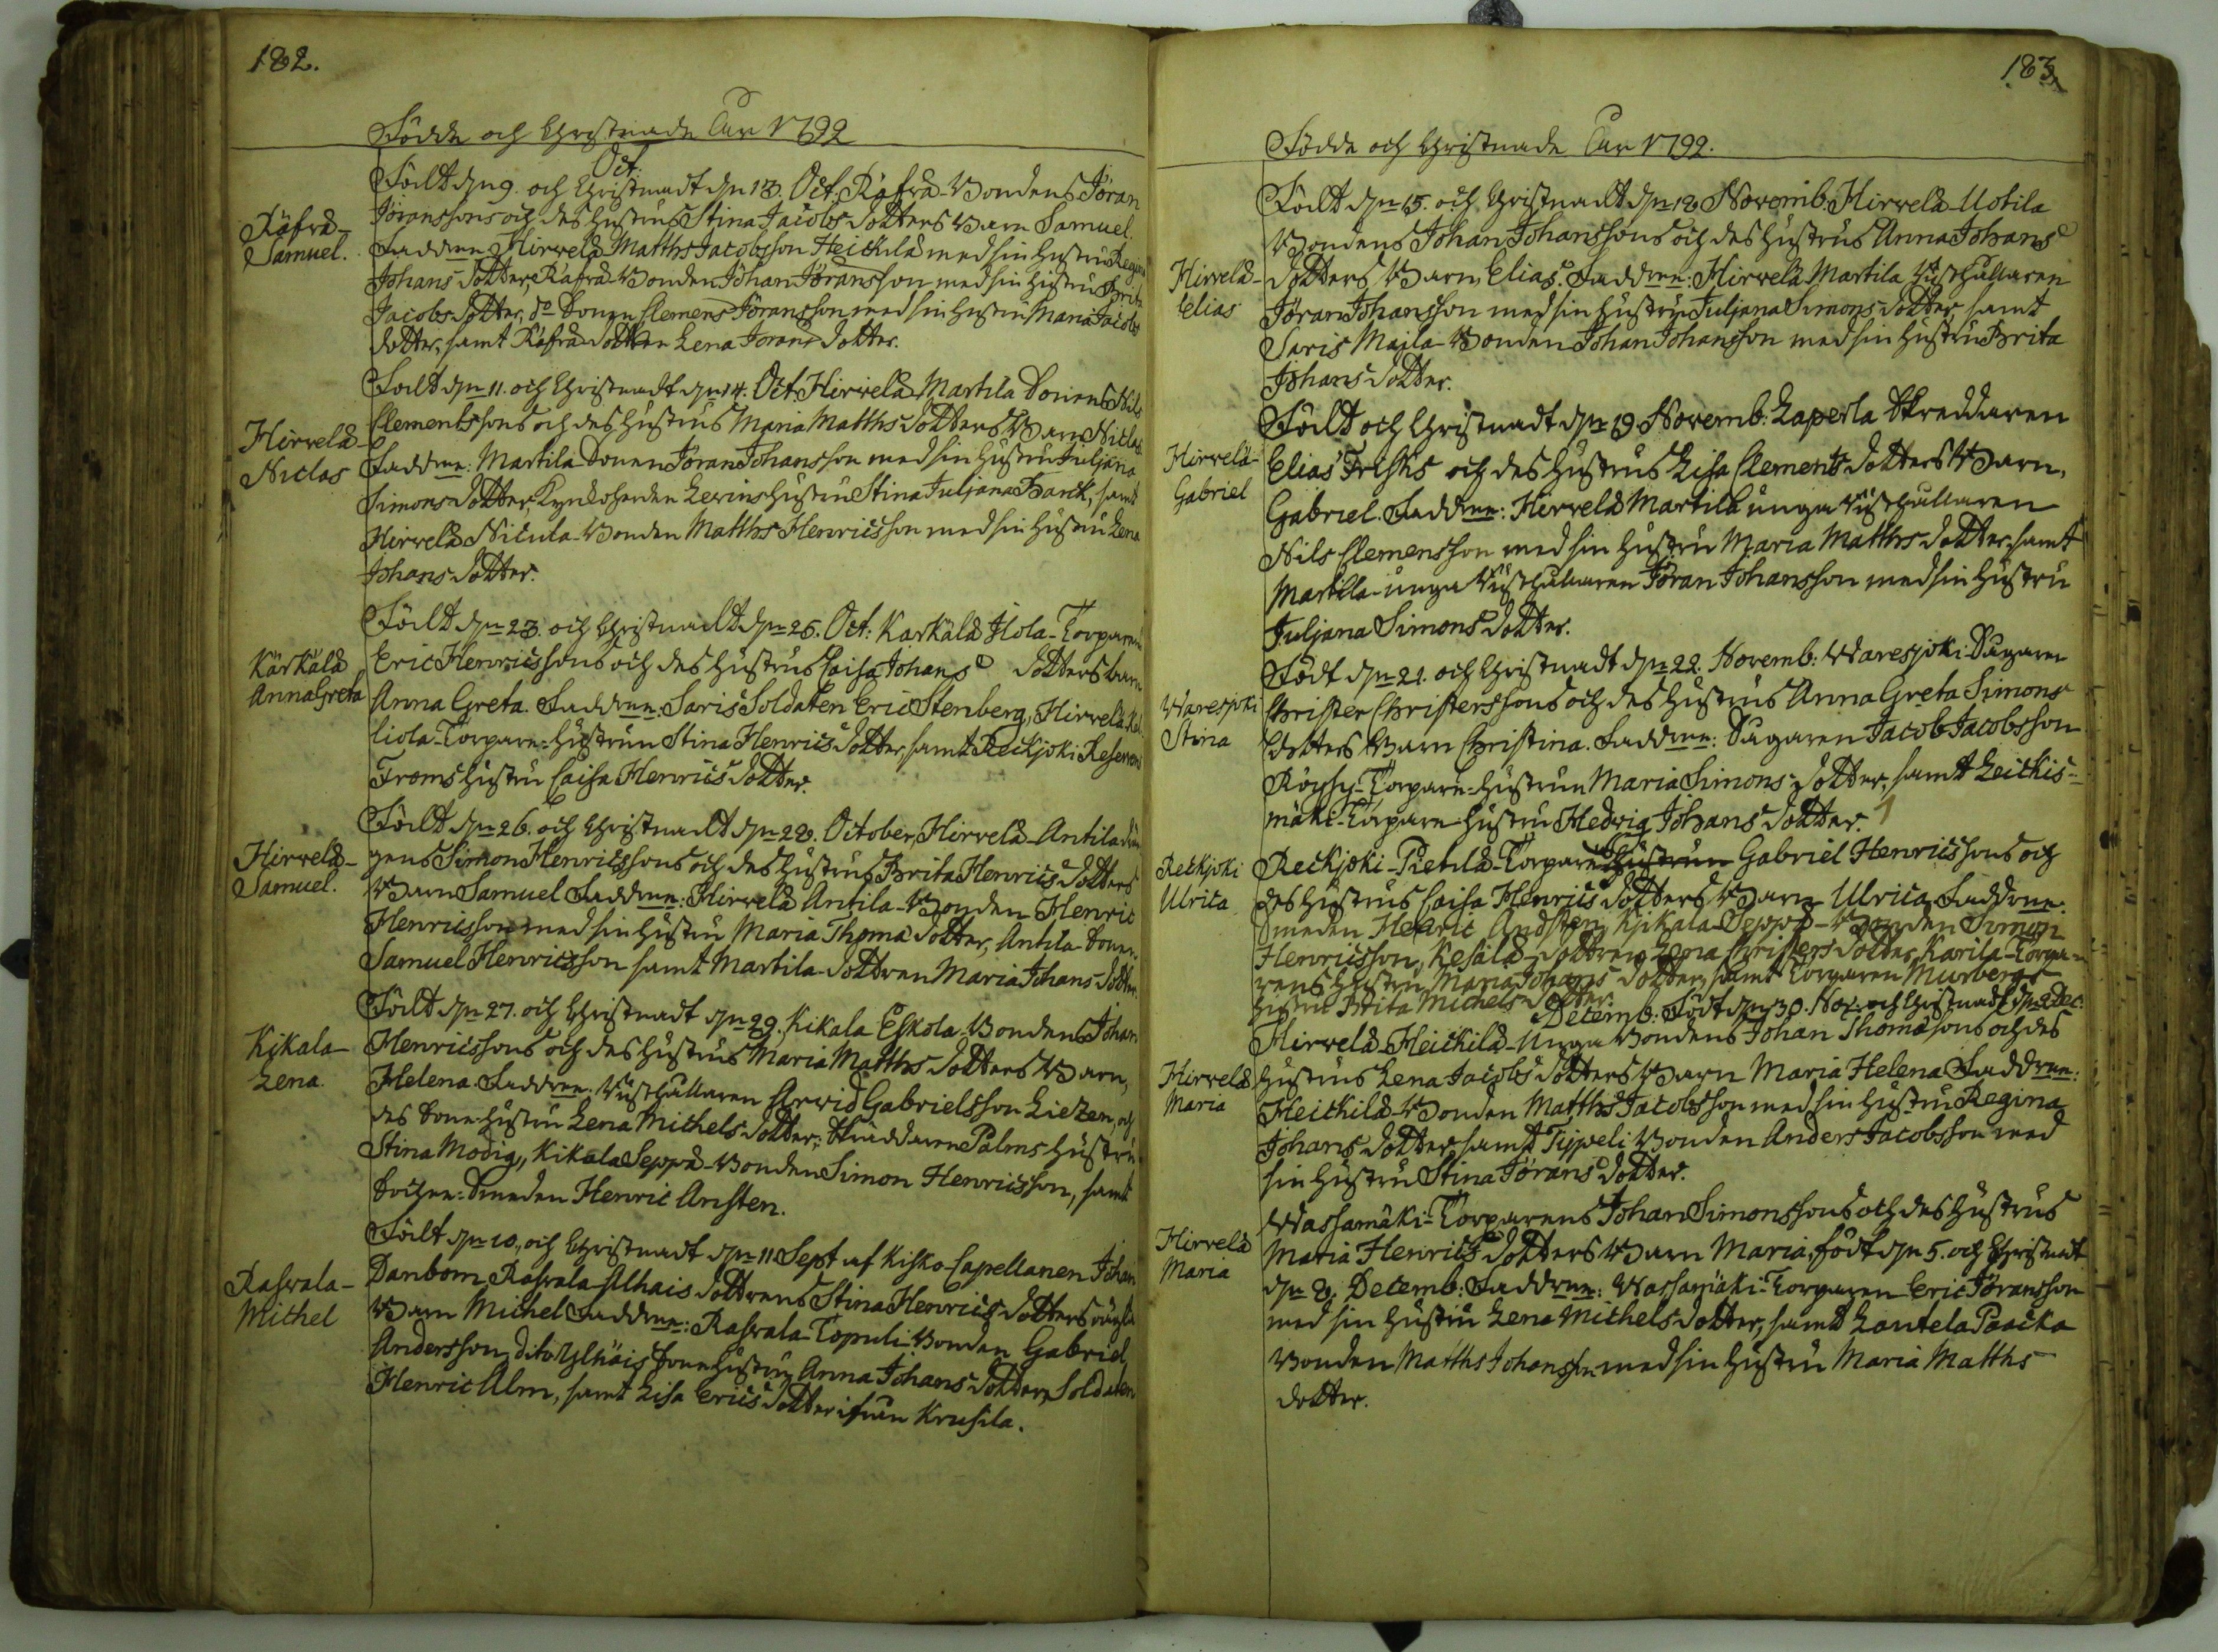 182.
Födde och Christnade Año 1792
Oct.
Födt d. 9. och Christnadt d. 13. Oct. Räfvä-Bondens Jöran
Jöranssons och des hustrus Stina Jacobs dotters Barn Samuel.
Räfvä-
Samuel.
Faddrene: Hirvelä Matths Jacobsson Heickilä med sin hustru Regina
Johans dotter, Räfvä-Bonden Johan Jöransson med sin hustru Brita
Jacobs dotter, do Sonen Clemens Jöransson med sin hustru Maria Jacobs
dotter, samt Räfvä dottren Lena Jörans dotter.
Födt d. 11. och Christnadt d. 14. Oct. Hirvelä Martila Sonens Nils
Clementssons och des hustrus Maria Matths dotters Barn Niclas
Hirvelä-
Niclas
Faddrene: Martila Sonen Jöran Johansson med sin hustru Juljana
Simons dotter, Levins hustru Stina Juljana Barck, samt
Hirvelä Nicula-Bonden Matths Henricsson med sin hustru Lena
Johans dotter.
Födt d. 23. och Christnadt d. 25. Oct. Karkälä Jlola-Torparen
Eric Henricssons och des hustrus Caisa Johans dotters barn
Kärkälä
Anna Greta
Anna Greta. Faddrene: Saris Soldaten Eric Stenberg, Hirvelä Kal-
liola-Torpare-hustrun Stina Henrics dotter, samt Reckjoki Reserven
Froms hustru Caisa Henrics dotter.
Födt d. 26. och Christnadt d. 28. October, Hirvelä-Antila drän-
gens Simon Henricssons och des hustrus Brita Henrics dotters
Hirvelä-
Samuel.
Barn Samuel Faddrene: Hirvelä Antila-Bonden Henric
Henricsson med sin hustru Maria Thomæ dotter, Antila-Sonen
Samuel Henricsson samt Martila-dottren Maria Johans dotter.
Födt d. 27. och Christnadt d. 29. Kikala Eskola-Bondens Johan
Henricssons och des hustrus Maria Matths dotters Barn,
Kikala-
Lena.
Helena. Faddrene: Rusthållaren Arvid Gabrielsson Liezen, och
des Sone-hustru Lena Michels dotter, Skräddaren Palms hustru
Stina Modig, Kikala Seppä-Bonden Simon Henricsson, samt
Sochne-Smeden Henric Ansten.
Födt d. 10., och Christnadt d. 11 Sept af Kisko-Capellanen Johan
Danbom, Rasvala-Alhais dottrens Stina Henrics dotters oägta
Rasvala-
Michel
Barn Michel Faddrene: Rasvala-Topuli-Bonden Gabriel
Andersson, dito Ylhäis Sonehustru Anna Johans dotter, Soldaten
Henric Alm, samt Lisa Erics dotter ifrån Krusila.
183.
Födde och Christnade Año 1792.
Födt d. 15. och Christnadt d. 18 Novemb: Hirvelä-Uotila
Bondens Johan Johanssons och des hustrus Anna Johans
Hirvelä-
Elias
dotters Barn, Elias. Faddrene: Hirvelä Martila Rusthållaren
Jöran Johansson med sin hustru Juljana Simons dotter, samt
Saris Majla-Bonden Johan Johansson med sin hustru Brita
Johans dotter.
Födt och Christnadt d. 19. Novemb: Laperla Skreddaren
Hirvelä-
Gabriel
Elias Frisks och des hustrus Lisa Clements dotters Barn,
Gabriel. Faddrene: Hirvelä Martila unga Rusthållaren
Nils Clemensson med sin hustru Maria Matths dotter, samt
Martila-unga Rusthållaren Jöran Johansson med sin hustru
Juljana Simons dotter.
Födt d. 21. och Christnadt d. 22. Novemb: Waresjoki-Sågaren
Waresjoki
Stina
Christer Christerssons och des hustrus Anna Greta Simons
dotters Barn Christina. Faddrene: Sågaren Jacob Jacobsson
Röyssy-Torpare-hustrun Maria Simons-dotter, samt Leickis-
mäki-Torpare hustru Hedvig Johans dotter.
Reckjoki
Ulrica
Reckjoki-Pietilä-Torparens hustrun Gabriel Henricssons och
des hustrus Caisa Henrics dotters Barn Ulrica Faddrene:
Smeden Henric Andsten, Kjkala-Seppä-Bonden Simon
Henricsson, Kesälä-dottren Lena Christers dotter, Karila-Torpa-
rens hustru Maria Johans dotter, samt Torparen Murbergs
hustru Brita Michels dotter.
Decemb: Födt d. 30. Nov: och Christnadt d. 2 Dec:
Hirvelä-Heickilä-Unga Bondens Johan Thomæsons och des
Hirvelä
Maria
hustrus Lena Jacobs dotters Barn Maria Helena Faddrene:
Heickilä-Bonden Matths Jacobsson med sin hustru Regina
Johans dotter, samt Tippeli Bonden Anders Jacobsson med
sin hustru Stina Jörans dotter.
Wassamäki-Torparens Johan Simonssons och des hustrus
Hirvelä
Maria
Maria Henrics dotters Barn Maria, födt d. 5. och Christnadt
d. 9. Decemb: Faddrene: Wassamäki-Torparen Eric Jöransson
med sin hustru Lena Michels dotter, samt Lautela Paacka
Bonden Matths Johansson med sin hustru Maria Matths
dotter.